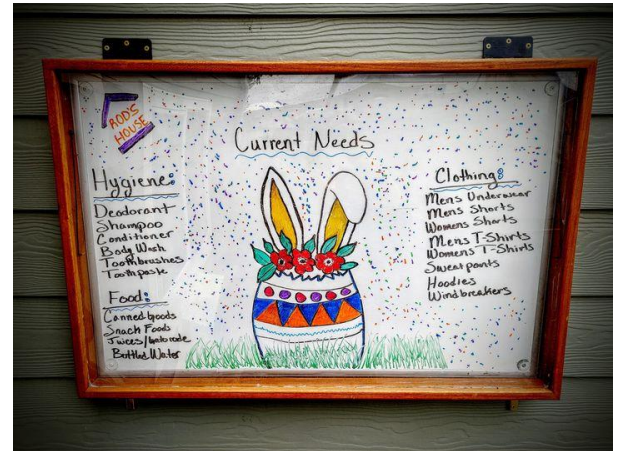 ROD'S
HOUSE
Current Needs
Hygiene:
Deodorant
Shampoo
Conditioner
Body Wash
Toothbrushes
Toothpaste
Food:
Canned goods
Snack Foods
Juices/Gatorade
Bottled Water
Clothing:
Mens Underwear
Mens Shorts
Womens Shorts
Mens T-Shirts
Womens T-Shirts
Sweatpants
Hoodies
Windbreakers